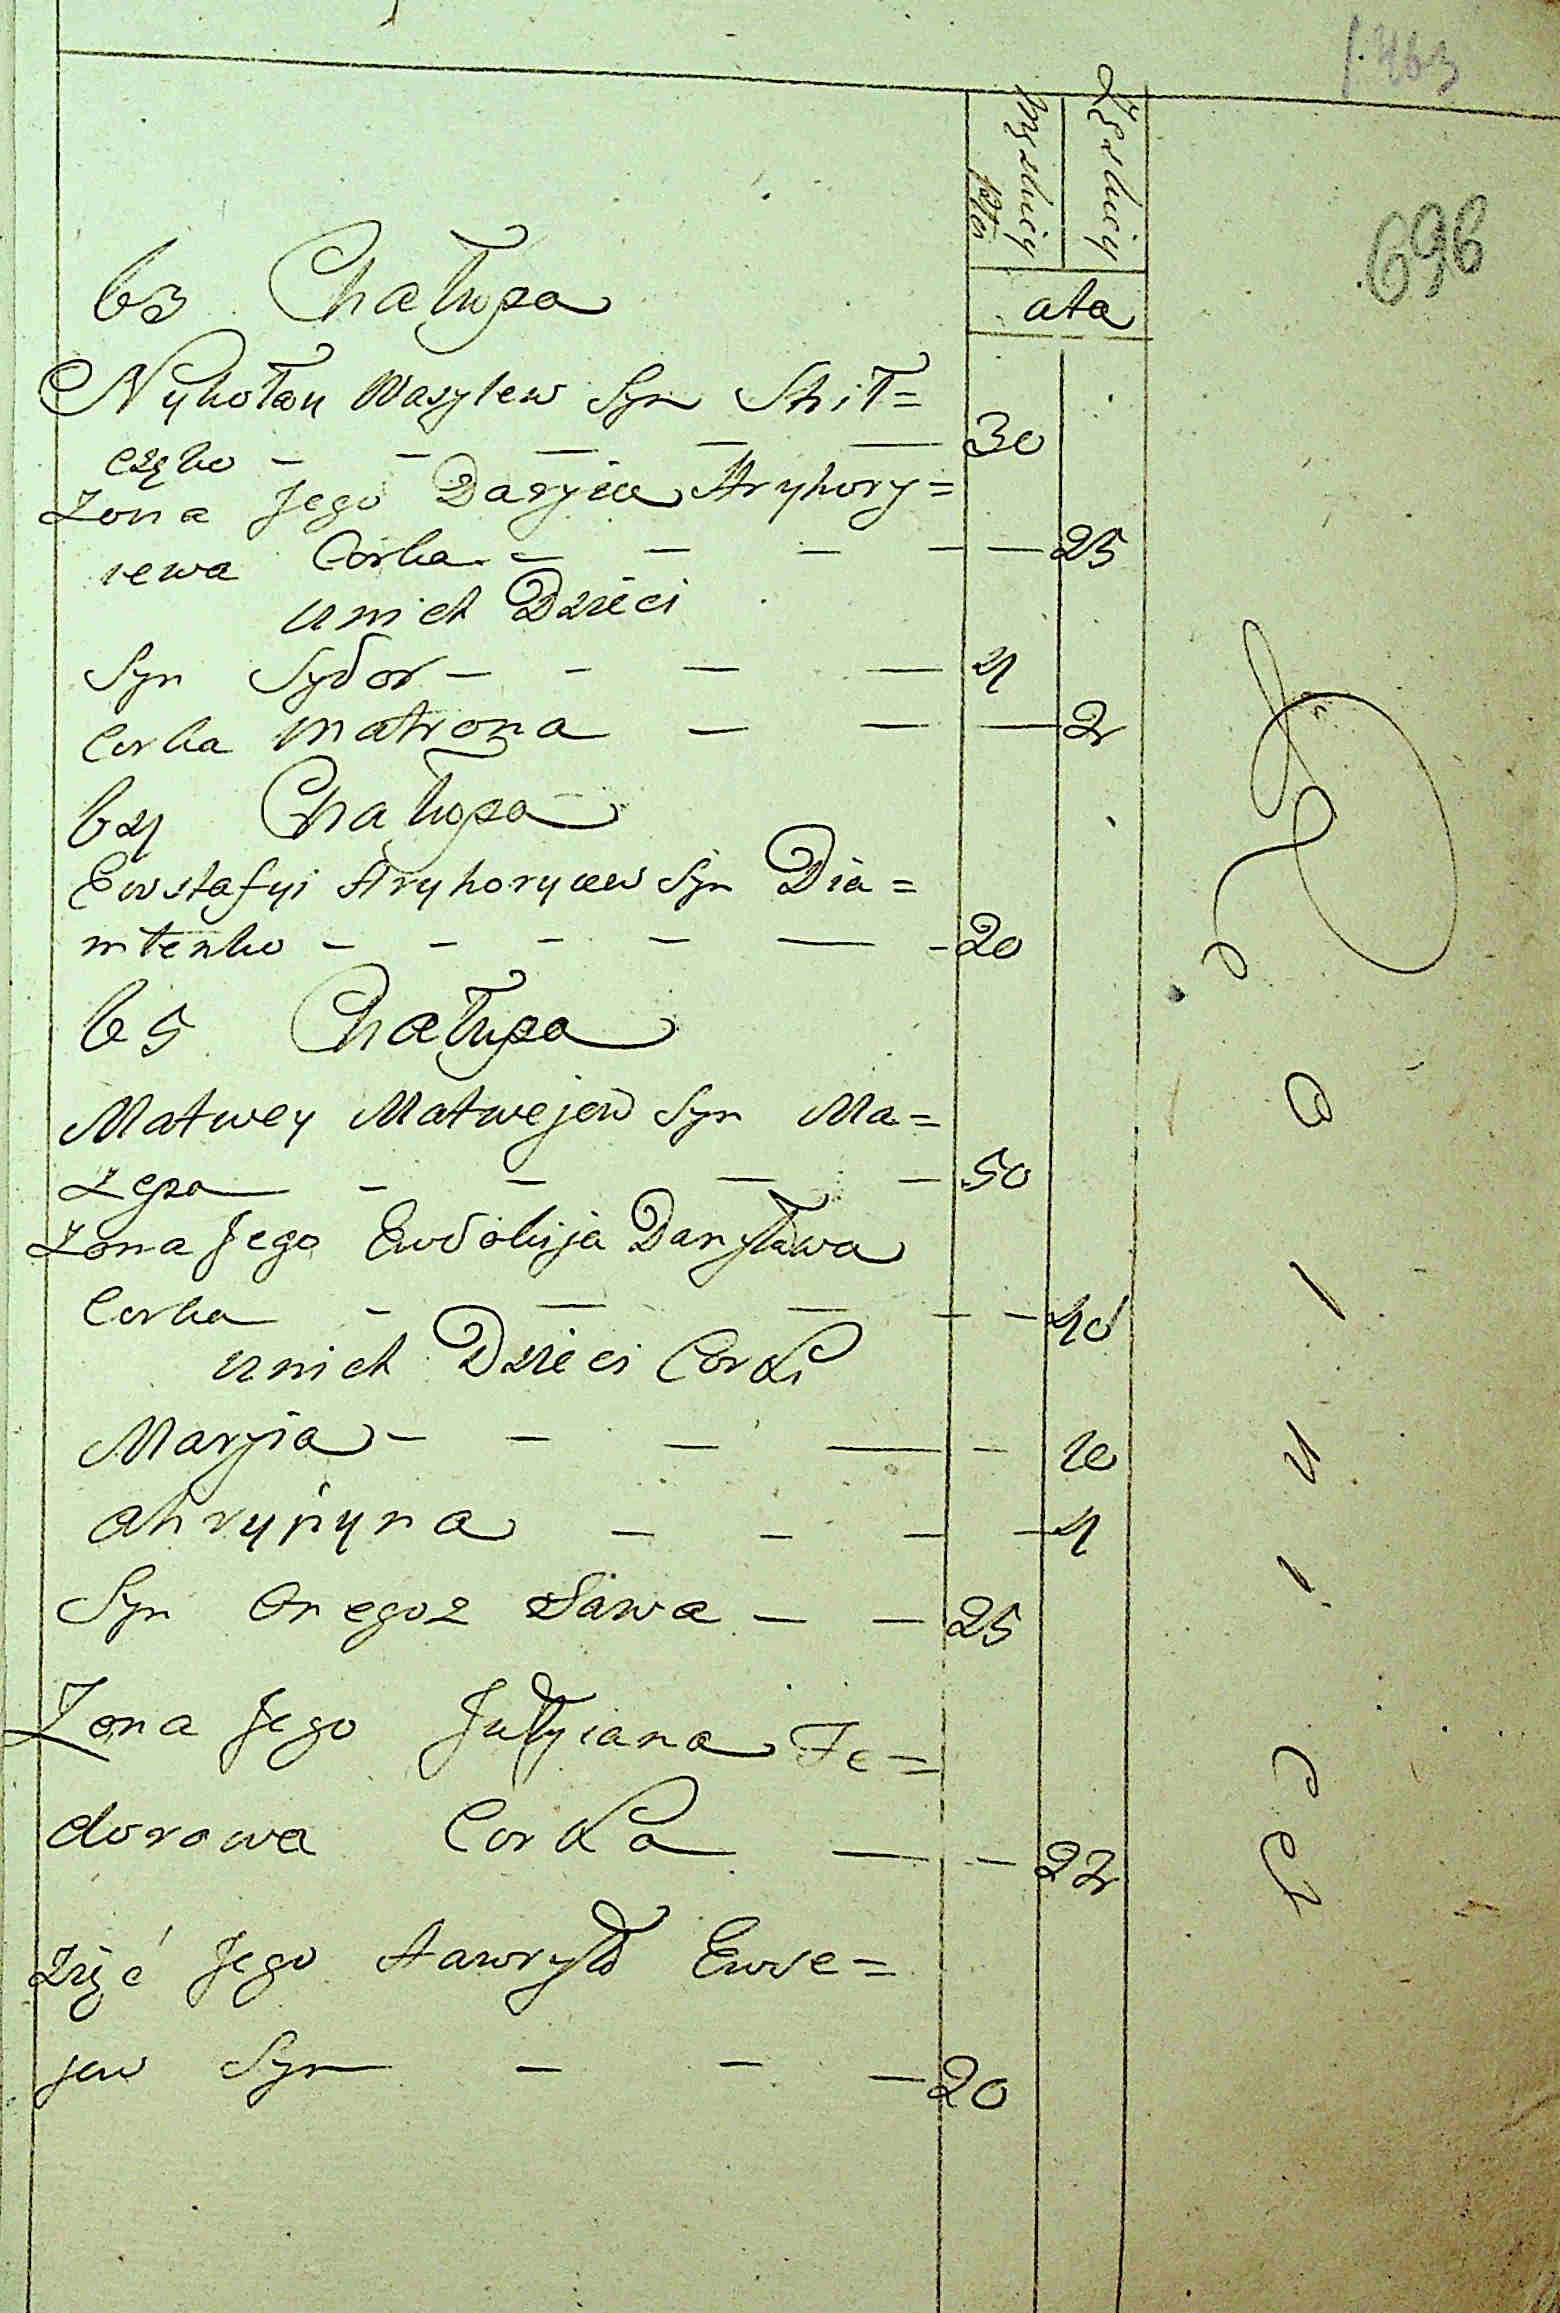 696
ata
63 Chałupa
Nykołay Wasylew Syn Shił=
częko 30
Zona Jego Daryia Hryhory=
iewa Corka 25
u nich Dzieci
Syn Sydor 4
Corka Matrona 2
64 Chałupa
Ewstafyi Hryhoryiew Syn Dia=
mtenko 20
65 Chałupa
Matwey Matwejew Syn Ma=
zepa 50
Zona Jego Ewdokija Danyłowa
Corka 40
u nich Dzieci Corki
Maryia 10
Ahrypyna 4
Syn Onegoz Sawa 25
Zona Jego Jułyiana Fe=
dorowa Corka 22
Zięć Jego Hawryło Ewse=
jew Syn 20